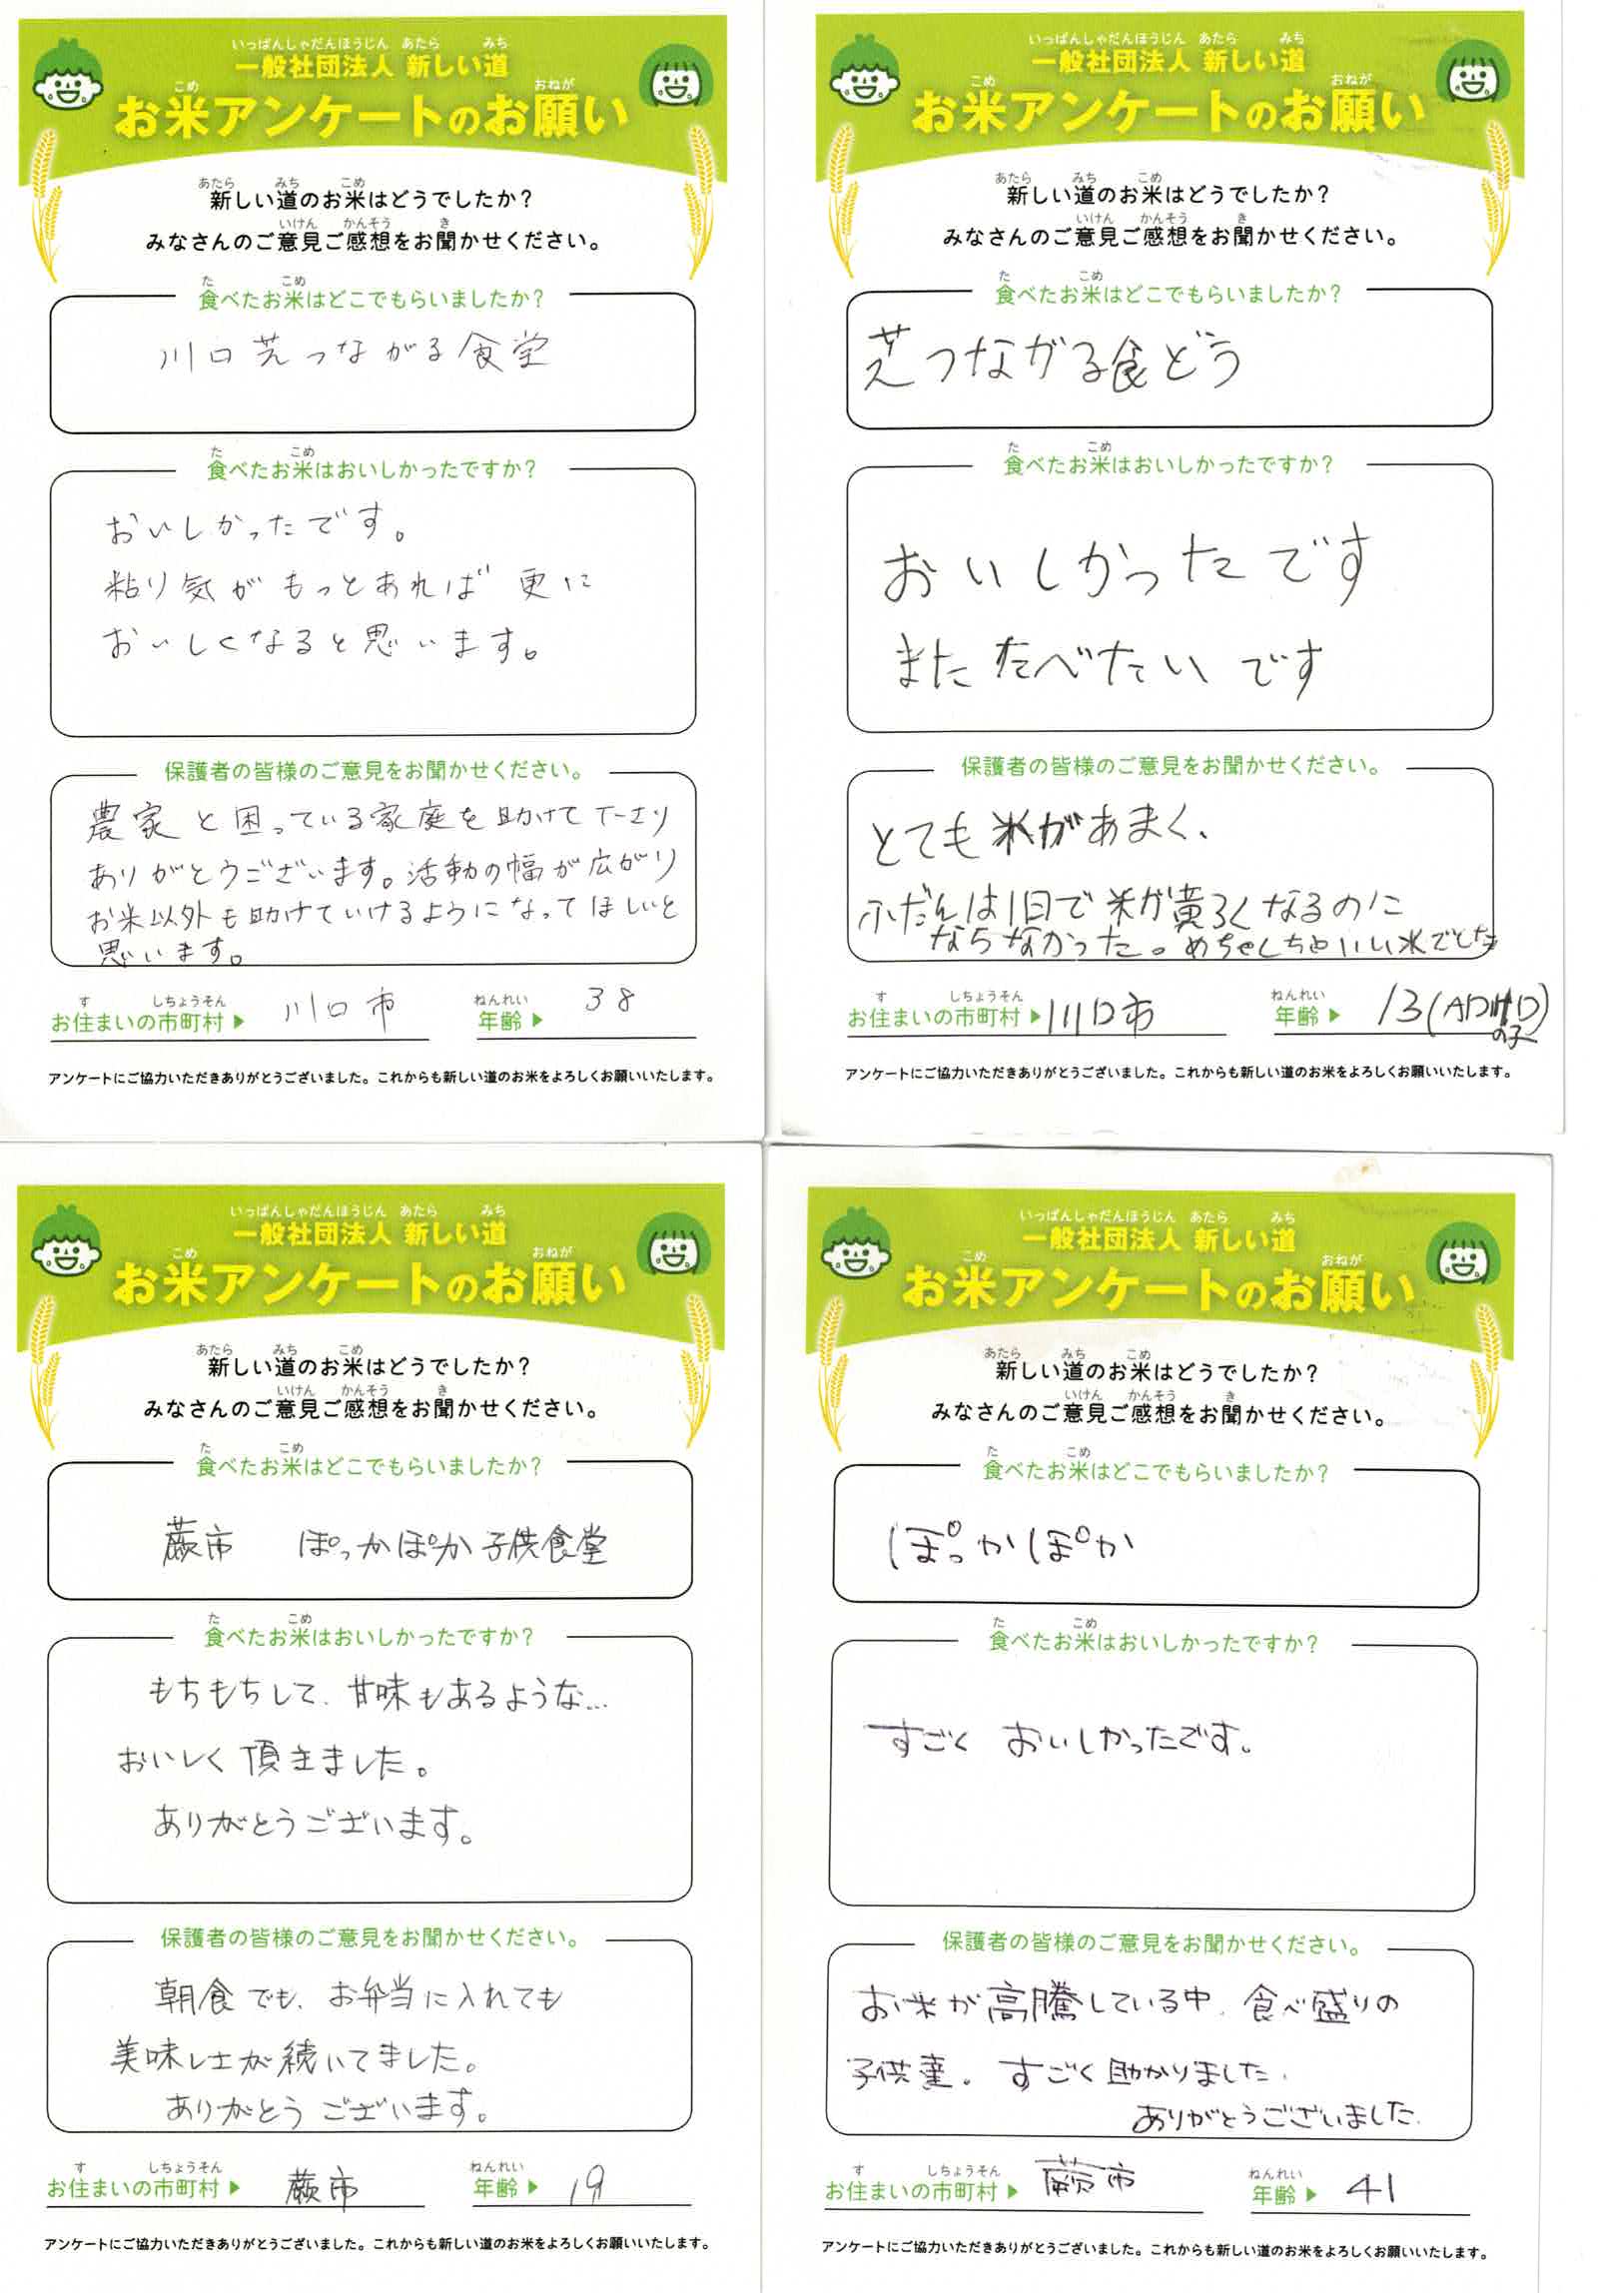 いっぱんしゃだんほうじん あたら みち
一般社団法人 新しい道
こめ おねが
お米アンケートのお願い
あたら みち こめ
新しい道のお米はどうでしたか？
いけん かんそう き
みなさんのご意見ご感想をお聞かせください。
た こめ
食べたお米はどこでもらいましたか？
川口芝つながる食堂
た こめ
食べたお米はおいしかったですか？
おいしかったです。
粘り気がもっとあれば更に
おいしくなると思います。
保護者の皆様のご意見をお聞かせください。
農家と困っている家庭を助けて下さり
ありがとうございます。活動の幅が広がり
お米以外も助けていけるようになってほしいと
思います。
す しちょうそん ねんれい
お住まいの市町村▶ 川口市 年齢▶ 38
アンケートにご協力いただきありがとうございました。これからも新しい道のお米をよろしくお願いいたします。
いっぱんしゃだんほうじん あたら みち
一般社団法人 新しい道
こめ おねが
お米アンケートのお願い
あたら みち こめ
新しい道のお米はどうでしたか？
いけん かんそう き
みなさんのご意見ご感想をお聞かせください。
た こめ
食べたお米はどこでもらいましたか？
芝つながる食どう
た こめ
食べたお米はおいしかったですか？
おいしかったです
またたべたいです
保護者の皆様のご意見をお聞かせください。
とても米があまく、
ふだんは1日で米が黄ろくなるのに
ならなかった。めちゃくちゃいい米でした
す しちょうそん ねんれい
お住まいの市町村▶ 川口市 年齢▶ 13(ADHD)
の子
アンケートにご協力いただきありがとうございました。これからも新しい道のお米をよろしくお願いいたします。
いっぱんしゃだんほうじん あたら みち
一般社団法人 新しい道
こめ おねが
お米アンケートのお願い
あたら みち こめ
新しい道のお米はどうでしたか？
いけん かんそう き
みなさんのご意見ご感想をお聞かせください。
た こめ
食べたお米はどこでもらいましたか？
蕨市 ぽっかぽか子供食堂
た こめ
食べたお米はおいしかったですか？
もちもちして、甘味もあるような…
おいしく頂きました。
ありがとうございます。
保護者の皆様のご意見をお聞かせください。
朝食でも、お弁当に入れても
美味しさが続いてました。
ありがとうございます。
す しちょうそん ねんれい
お住まいの市町村▶ 蕨市 年齢▶ 19
アンケートにご協力いただきありがとうございました。これからも新しい道のお米をよろしくお願いいたします。
いっぱんしゃだんほうじん あたら みち
一般社団法人 新しい道
こめ おねが
お米アンケートのお願い
あたら みち こめ
新しい道のお米はどうでしたか？
いけん かんそう き
みなさんのご意見ご感想をお聞かせください。
た こめ
食べたお米はどこでもらいましたか？
ぽっかぽか
た こめ
食べたお米はおいしかったですか？
すごくおいしかったです。
保護者の皆様のご意見をお聞かせください。
お米が高騰している中、食べ盛りの
子供達。すごく助かりました。
ありがとうございました。
す しちょうそん ねんれい
お住まいの市町村▶ 蕨市 年齢▶ 41
アンケートにご協力いただきありがとうございました。これからも新しい道のお米をよろしくお願いいたします。